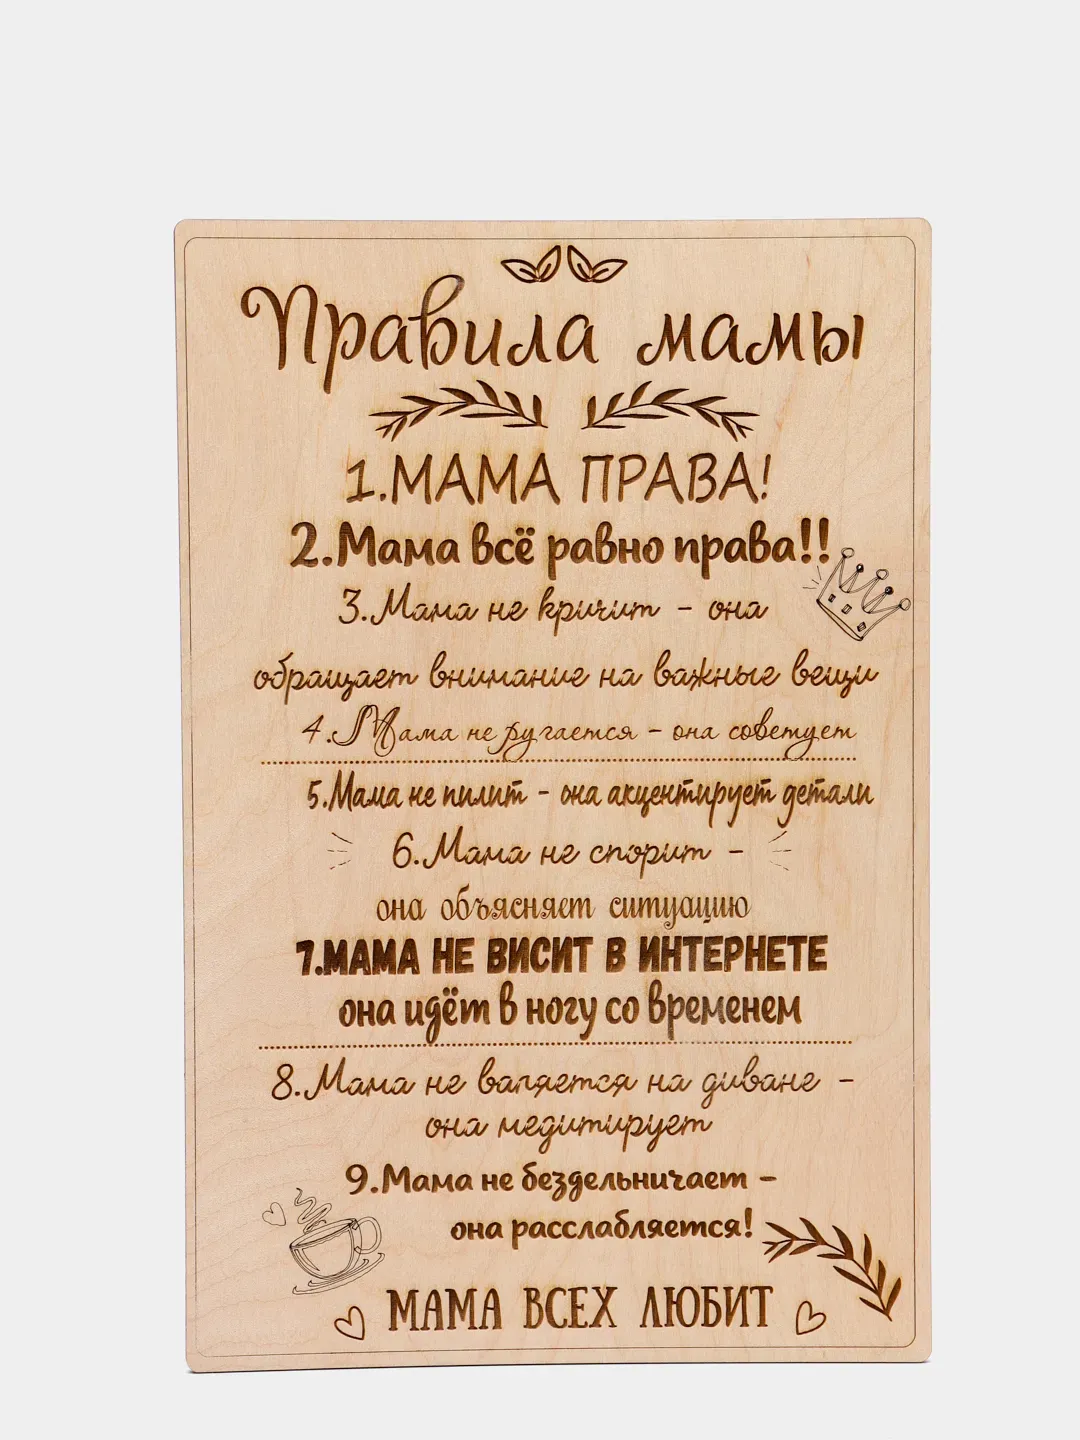 Правила мамы
1.МАМА ПРАВА!
2.Мама всё равно права!!
3.Мама не кричит - она
обращает внимание на важные вещи
4.Мама не ругается - она советует
5.Мама не пилит - она акцентирует детали
6.Мама не спорит -
она объясняет ситуацию
7.МАМА НЕ ВИСИТ В ИНТЕРНЕТЕ
она идёт в ногу со временем
8.Мама не валяется на диване -
она медитирует
9.Мама не бездельничает -
она расслабляется!
МАМА ВСЕХ ЛЮБИТ